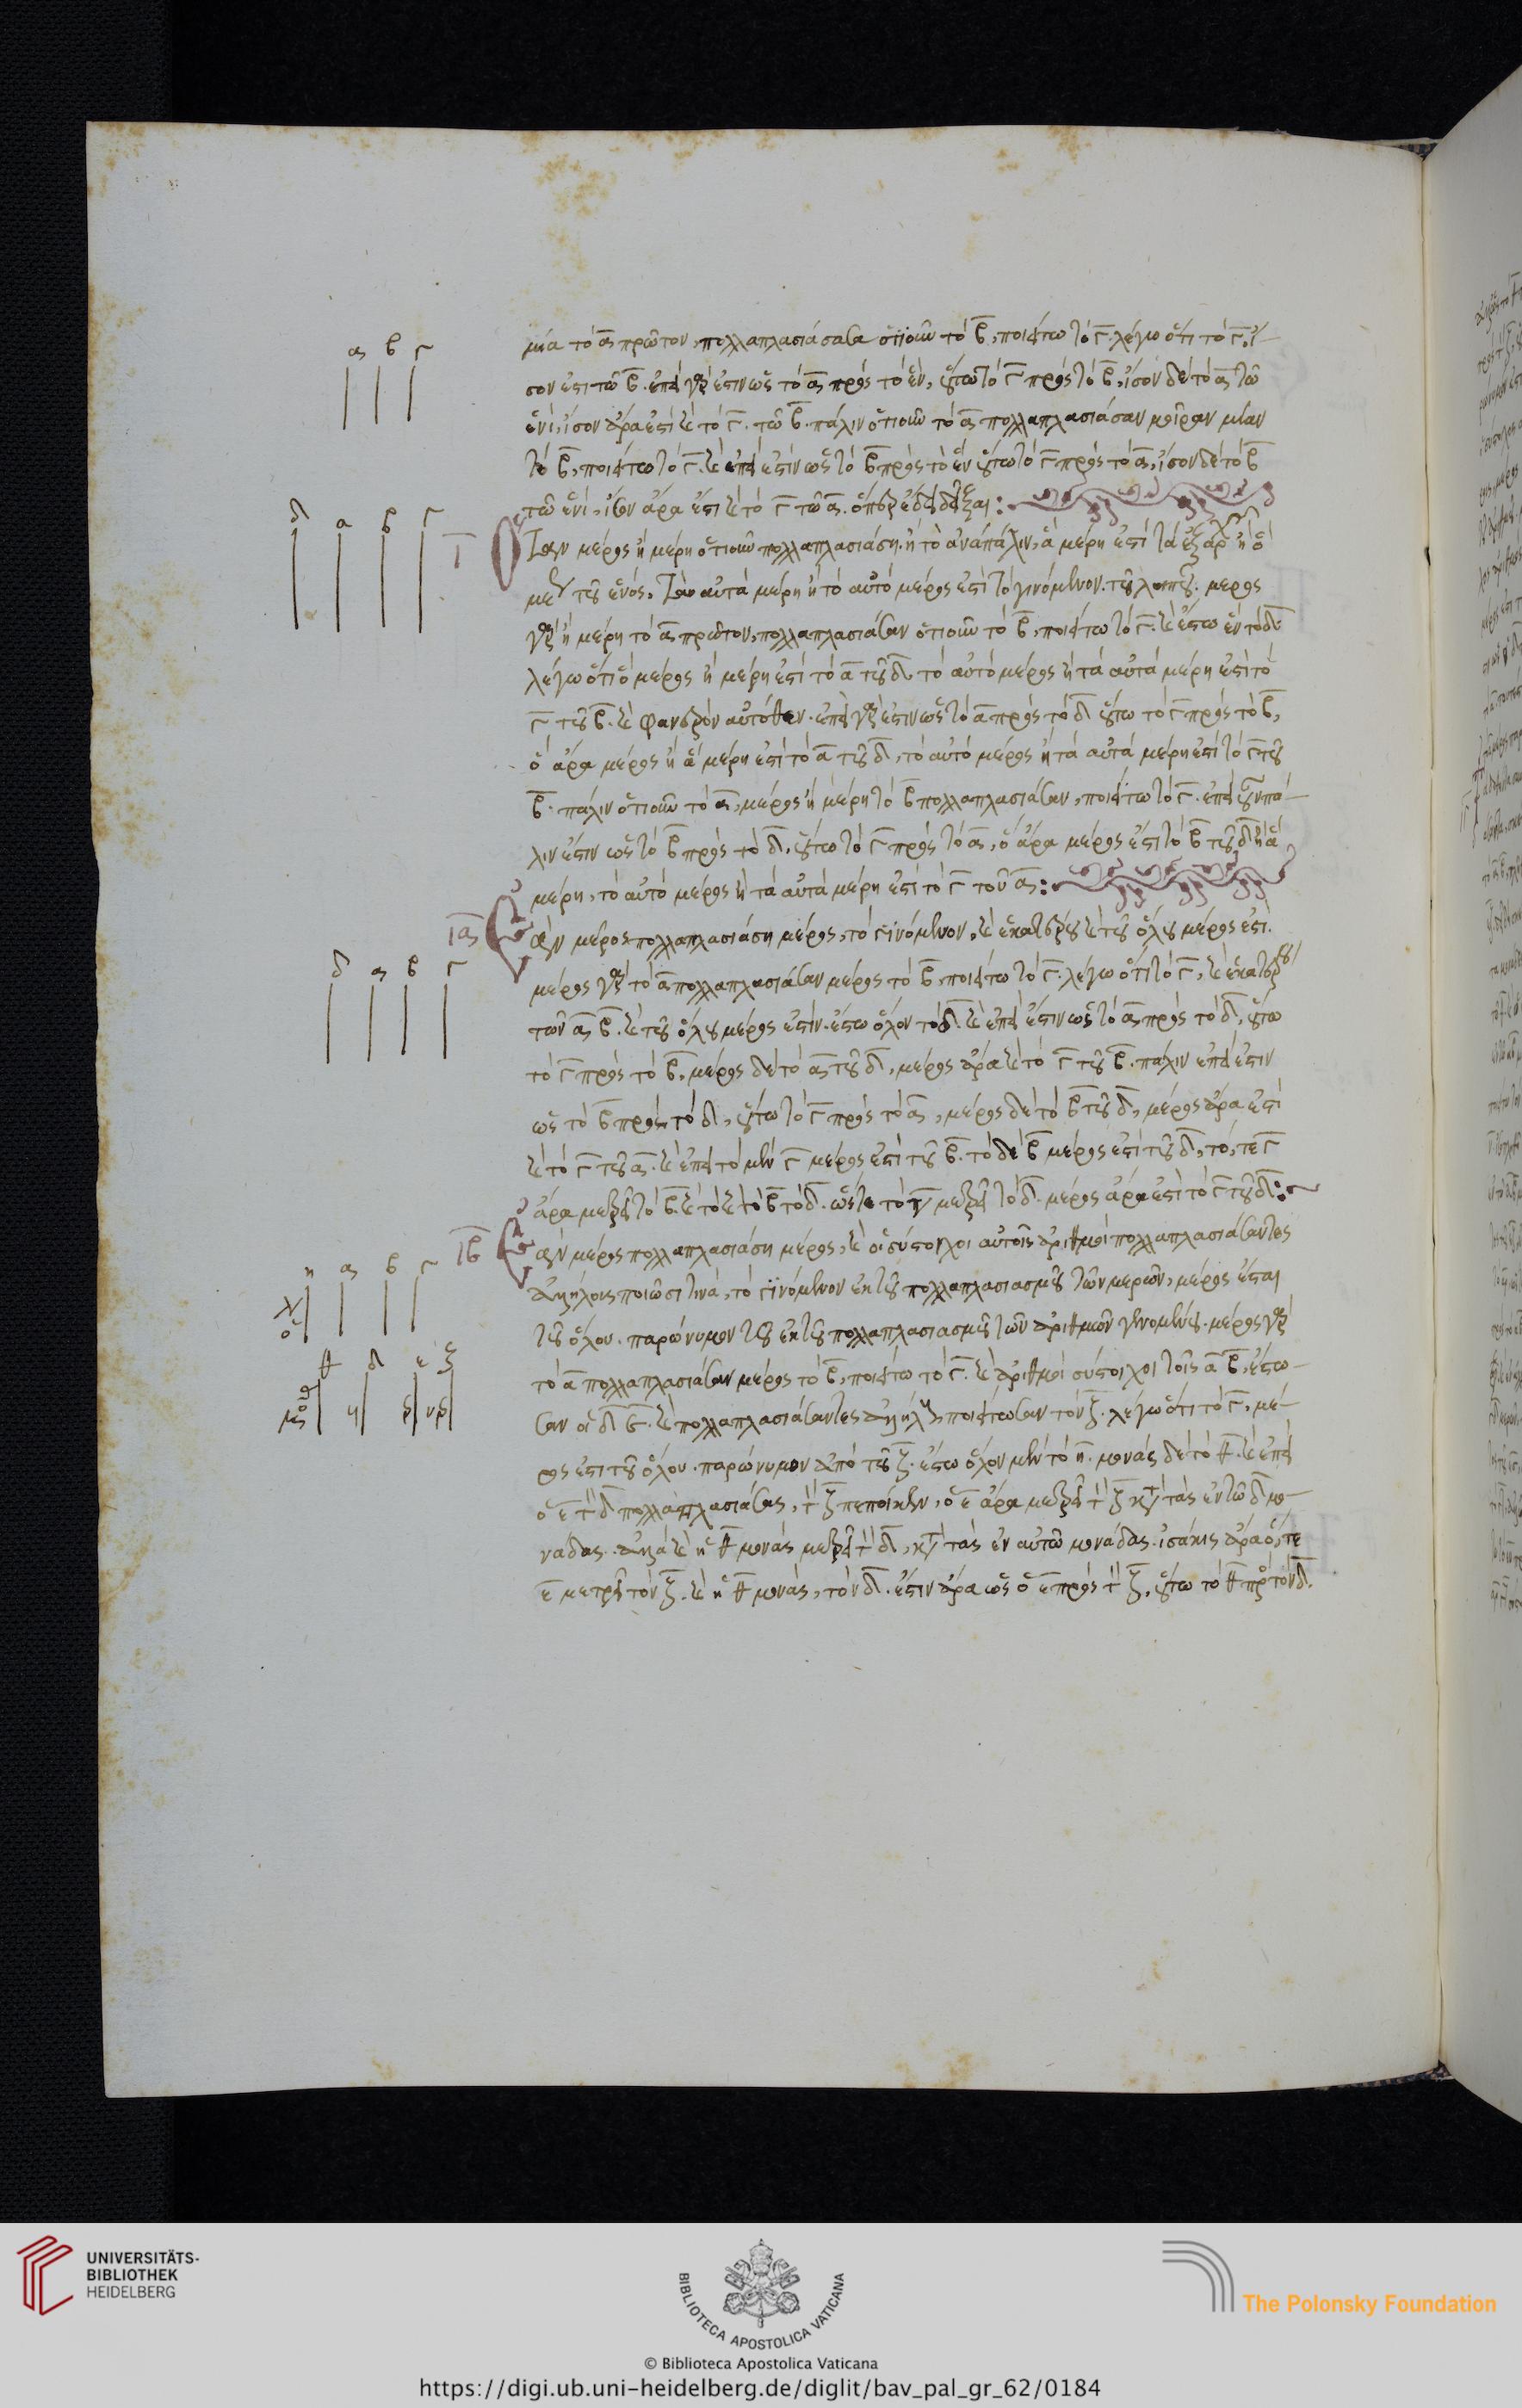 α β γ
μία τὸ α πρῶτον, πολλαπλασιάσασα ὁτιοῦν τὸ β, ποιείτω τὸ γ. λέγω ὅτι τὸ γ, ἴ-
σον ἐστὶ τῷ β. ἐπεὶ γάρ ἐστιν ὡς τὸ α πρὸς τὸ ἕν, οὕτω τὸ γ πρὸς τὸ β, ἴσον δὲ τὸ α τῷ
ἑνί, ἴσον ἄρα ἐστὶ καὶ τὸ γ. τῷ β. πάλιν ὁτιοῦν τὸ α πολλαπλασιάσαν μοῖραν μίαν
τὸ β, ποιείτω τὸ γ. καὶ ἐπεί ἐστιν ὡς τὸ β πρὸς τὸ ἕν οὕτω τὸ γ πρὸς τὸ α, ἴσον δὲ τὸ β
τῷ ἑνί, ἴσον ἄρα ἐστὶ καὶ τὸ γ τῷ α. ὅπερ ἔδει δεῖξαι:
δ α β γ
ι
Ἐὰν μέρος ἢ μέρη ὁτιοῦν πολλαπλασιάσῃ. ἢ τὸ ἀνάπαλιν, ἃ μέρη ἐστὶ τὰ ἐξ ἀρχῆς ἢ ὃ
μέρος τοῦ ἑνός, τὰ αὐτὰ μέρη ἢ τὸ αὐτὸ μέρος ἐστὶ τὸ γινόμενον. τοῦ λοιποῦ. μέρος
γὰρ ἢ μέρη τὸ α πρῶτον, πολλαπλασιάσαν ὁτιοῦν τὸ β, ποιείτω τὸ γ. καὶ ἔστω ἓν τὸ δ.
λέγω ὅτι ὃ μέρος ἢ μέρη ἐστὶ τὸ α τοῦ δ. τὸ αὐτὸ μέρος ἢ τὰ αὐτὰ μέρη ἐστὶ τὸ
γ τοῦ β. καὶ φανερὸν αὐτόθεν. ἐπεὶ γάρ ἐστιν ὡς τὸ α πρὸς τὸ δ οὕτω τὸ γ πρὸς τὸ β,
ὃ ἄρα μέρος ἢ ἃ μέρη ἐστὶ τὸ α τοῦ δ, τὸ αὐτὸ μέρος ἢ τὰ αὐτὰ μέρη ἐστὶ τὸ γ τοῦ
β. πάλιν ὁτιοῦν τὸ α, μέρος ἢ μέρη τὸ β πολλαπλασιάσαν, ποιείτω τὸ γ. ἐπεὶ οὖν πά-
λιν ἐστὶν ὡς τὸ β πρὸς τὸ δ, οὕτω τὸ γ πρὸς τὸ α, ὃ ἄρα μέρος ἐστὶ τὸ β τοῦ δ ἢ ἃ
μέρη, τὸ αὐτὸ μέρος ἢ τὰ αὐτὰ μέρη ἐστὶ τὸ γ τοῦ α:
ια
Ἐὰν μέρος πολλαπλασιάσῃ μέρος, τὸ γινόμενον, καὶ ἑκατέρου καὶ τοῦ ὅλου μέρος ἐστί.
δ α β γ
μέρος γὰρ τὸ α πολλαπλασιάσαν μέρος τὸ β, ποιείτω τὸ γ. λέγω ὅτι τὸ γ, καὶ ἑκατέρου
τῶν α β. καὶ τοῦ ὅλου μέρος ἐστίν. ἔστω ὅλον τὸ δ. καὶ ἐπεί ἐστιν ὡς τὸ α πρὸς τὸ δ, οὕτω
τὸ γ πρὸς τὸ β, μέρος δὲ τὸ α τοῦ δ, μέρος ἄρα καὶ τὸ γ τοῦ β. πάλιν ἐπεί ἐστιν
ὡς τὸ β πρὸς τὸ δ, οὕτω τὸ γ πρὸς τὸ α, μέρος δὲ τὸ β τοῦ δ, μέρος ἄρα ἐστὶ
καὶ τὸ γ τοῦ α. καὶ ἐπεὶ τὸ μὲν γ μέρος ἐστὶ τοῦ β. τὸ δὲ β μέρος ἐστὶ τοῦ δ, τό, τε γ
ἄρα μετρεῖ τὸ β. καὶ τὸ β τὸ δ. ὥστε τὸ γ μετρεῖ τὸ δ. μέρος ἄρα ἐστὶ τὸ γ τοῦ δ:
ιβ
Ἐὰν μέρος πολλαπλασιάσῃ μέρος, καὶ οἱ σύστοιχοι αὐτοῖς ἀριθμοὶ πολλαπλασιάσαντες
η α β γ
ἀλλήλους ποιῶσι τινά, τὸ γινόμενον ἐκ τοῦ πολλαπλασιασμοῦ τῶν μερῶν, μέρος ἔσται
τοῦ ὅλου. παρώνυμον τοῦ ἐκ τοῦ πολλαπλασιασμοῦ τῶν ἀριθμῶν γινομένου. μέρος γὰρ
θ δ ε ζ
τὸ α πολλαπλασιάσαν μέρος τὸ β, ποιείτω τὸ γ. καὶ ἀριθμοὶ σύστοιχοι τοῖς α β, ἔστω-
σαν οἱ δ ε. καὶ πολλαπλασιάσαντες ἀλλήλους, ποιείτωσαν τὸν ζ. λέγω ὅτι τὸ γ, μέ-
ρος ἐστὶ τοῦ ὅλου. παρώνυμον ἀπὸ τοῦ ζ. ἔστω ὅλον μὲν τὸ η. μονὰς δὲ τὸ θ. καὶ ἐπεὶ
ὁ ε τὸν δ πολλαπλασιάσας, τὸν ζ πεποίηκεν, ὁ ε ἄρα μετρεῖ τὸν ζ κατὰ τὰς ἐν τῷ δ μο-
νάδας. ἀλλὰ καὶ ἡ θ μονὰς μετρεῖ τὸν δ, κατὰ τὰς ἐν αὐτῷ μονάδας. ἰσάκις ἄρα ὅ, τε
ε μετρεῖ τὸν ζ. καὶ ἡ θ μονάς, τὸν δ. ἔστιν ἄρα ὡς ὁ ε πρὸς τὸν ζ, οὕτω τὸ θ πρὸς τὸν δ.
UNIVERSITÄTS-
BIBLIOTHEK
HEIDELBERG
BIBLIOTECA APOSTOLICA VATICANA
The Polonsky Foundation
© Biblioteca Apostolica Vaticana
https://digi.ub.uni-heidelberg.de/diglit/bav_pal_gr_62/0184